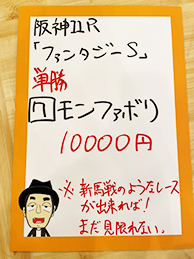 阪神11R
「ファンタジーS」
単勝
7モンファボリ
10000円
※新馬戦のようなレース
が出来れば!
まだ見限れない。